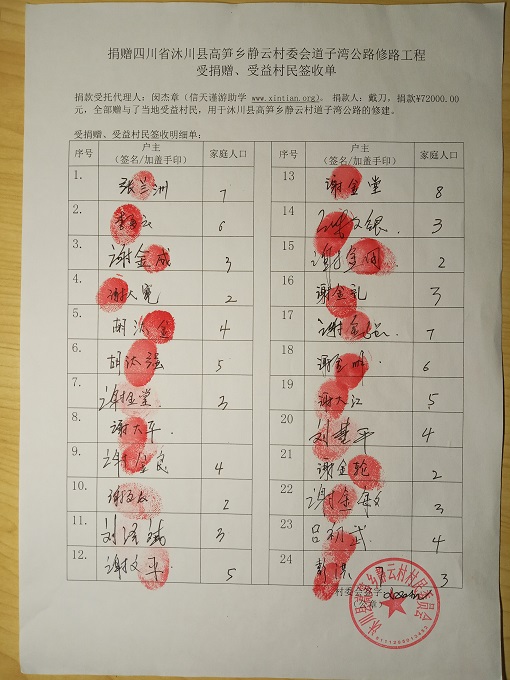 捐赠四川省沐川县高笋乡静云村委会道子湾公路修路工程
受捐赠、受益村民签收单
捐款受托代理人：闵杰章（信天谨游助学 www.xintian.org)，捐款人：戴刀，捐款¥72000.00
元，全部赠与了当地受益村民，用于沐川县高笋乡静云村道子湾公路的修建。
受捐赠、受益村民签收明细单：
序号 户主（签名/加盖手印） 家庭人口 序号 户主（签名/加盖手印） 家庭人口
1. 张兰洲 7
2. 6
3. 谢金成 3
4. 2
5. 胡 金 4
6. 胡 强 5
7. 谢金堂 3
8. 谢大平
9. 谢金良 4
10. 谢 2
11. 刘泽斌 3
12. 谢文平 5
13 谢金堂 8
14 文银 3
15 谢金 2
16 谢金礼 3
17 谢金 7
18 谢金明 6
19 谢大江 5
20 刘 平 4
21 谢金轮 2
22 谢金 3
23 吕 武 4
24 彭洪 3
村委会签字
（公章）
沐川县高笋乡静云村村民委员会